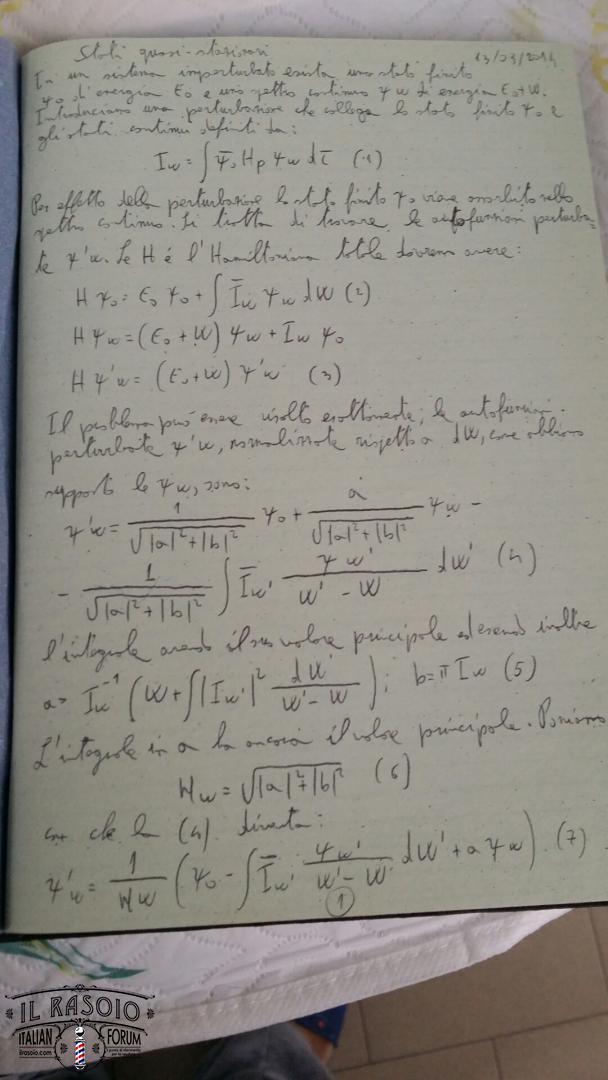 Stati quasi-stazionari 13/03/2014
In un sistema imperturbato esista uno stato finito
ψ₀ d'energia E₀ e uno spettro continuo ψw di energia E₀+W.
Introduciamo una perturbazione che collega lo stato finito ψ₀ e
gli stati continui definiti da:
Iw = ∫ ψ̄₀ Hp ψw dτ (1)
Per effetto della perturbazione lo stato finito ψ₀ viene assorbito nello
spettro continuo. Si tratta di trovare le autofunzioni perturba-
te ψ'w. Se H é l'Hamiltoniana totale dovremo avere:
H ψ₀ = E₀ ψ₀ + ∫ Īw ψw dW (2)
H ψw = (E₀ + W) ψw + Iw ψ₀
H ψ'w = (E₀ + W) ψ'w (3)
Il problema può essere risolto esattamente; le autofunzioni
perturbate ψ'w, normalizzate rispetto a dW, come abbiamo
supposto le ψw, sono:
ψ'w = 1/√(|a|²+|b|²) ψ₀ + a/√(|a|²+|b|²) ψw -
- 1/√(|a|²+|b|²) ∫ Īw' ψw'/(W' - W) dW' (4)
l'integrale avendo il suo valore principale ed essendo inoltre
a = Iw⁻¹ (W + ∫|Iw'|² dW'/(W' - W)); b = π Iw (5)
L'integrale in a ha ancora il valore principale. Poniamo
Nw = √(|a|²+|b|²) (6)
che la (4) diventa:
ψ'w = 1/Nw (ψ₀ - ∫ Īw' ψw'/(W' - W) dW' + a ψw). (7)
1
IL RASOIO
ITALIAN FORUM
ilrasoio.com